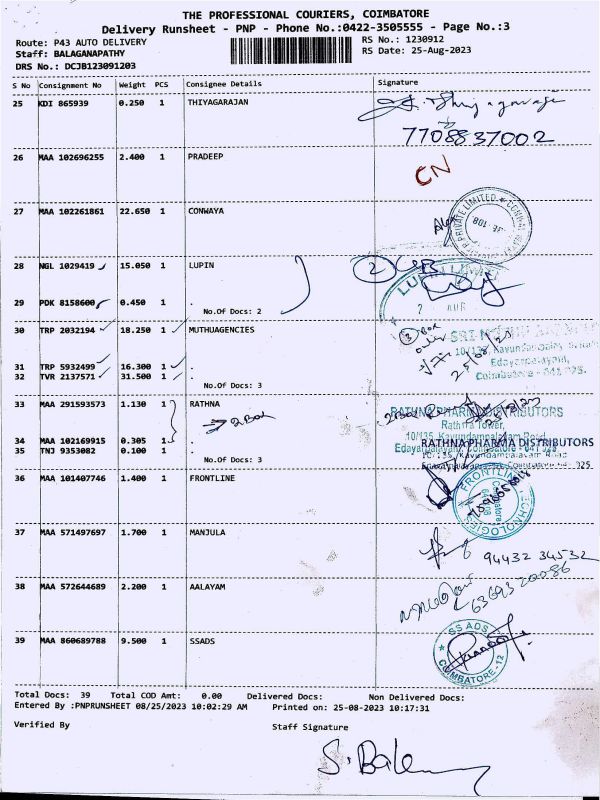 THE PROFESSIONAL COURIERS, COIMBATORE
Delivery Runsheet - PNP - Phone No.:0422-3505555 - Page No.:3
Route: P43 AUTO DELIVERY
Staff: BALAGANAPATHY
DRS No.: DCJB123091203
RS No.: 1230912
RS Date: 25-Aug-2023
S No Consignment No Weight PCS Consignee Details Signature
25 KDI 865939 0.250 1 THIYAGARAJAN
7708837002
26 MAA 102696255 2.400 1 PRADEEP CN
27 MAA 102261861 22.650 1 CONWAYA
PRIVATE LIMITED
28 NGL 1029419 15.050 1 LUPIN 2
29 PDK 8158600 0.450 1 .
No.Of Docs: 2
30 TRP 2032194 18.250 1 MUTHUAGENCIES
31 TRP 5932499 16.300 1 .
32 TVR 2137571 31.500 1 .
No.Of Docs: 3
Coimbatore - 641 025.
33 MAA 291593573 1.130 1 RATHNA
2 Box
RATHNA PHARMA DISTRIBUTORS
Rathna Tower,
10/135, Kavundampalayam Road
34 MAA 102169915 0.305 1 .
RATHNA PHARMA DISTRIBUTORS
35 TNJ 9353082 0.100 1 .
No.Of Docs: 3
36 MAA 101407746 1.400 1 FRONTLINE
FRONTLINE TECHNOLOGIES
Coimbatore
37 MAA 571497697 1.700 1 MANJULA
94432 34532
38 MAA 572644689 2.200 1 AALAYAM
39 MAA 860689788 9.500 1 SSADS
SS ADS
COIMBATORE-12
Total Docs: 39 Total COD Amt: 0.00 Delivered Docs: Non Delivered Docs:
Entered By :PNPRUNSHEET 08/25/2023 10:02:29 AM Printed on: 25-08-2023 10:17:31
Verified By Staff Signature